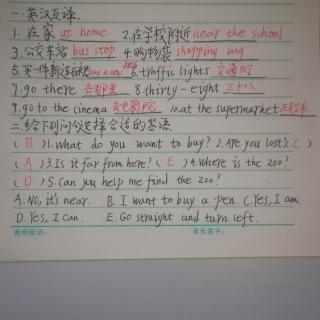 一.英汉互译.
1.在家 at home 2.在学校附近 near the school
3.公交车站 bus stop 4.购物袋 shopping bag
5.买一件新连衣裙 buy a new dress 6.traffic lights 交通灯
7.go there 去那里 8.thirty-eight 三十八
9.go to the cinema 去电影院 10.at the supermarket 在超市
二.给下列问句选择合适的答语.
( B )1.What do you want to buy? 2.Are you lost?( C )
( A )3.Is it far from here? ( E )4.Where is the zoo?
( D )5.Can you help me find the zoo?
A.No, it's near. B. I want to buy a pen. C.Yes, I am.
D.Yes, I can. E. Go straight and turn left.
教师按语: 家长签字: